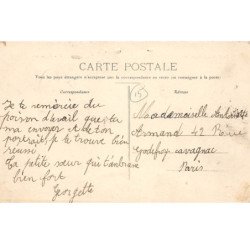 CARTE POSTALE
Tous les pays étrangers n'acceptent pas la correspondance au recto (se renseigner à la poste)
Correspondance
Adresse
15
Je te remercie du
poison d'avril que tu
ma envoyer et de ton
portrait je te trouve bien
reussi
Ta petite sœur qui t'embrasse
bien fort
Georgette
Mademoiselle
Armand 42 Rue
Godefroy cavagnac
Paris